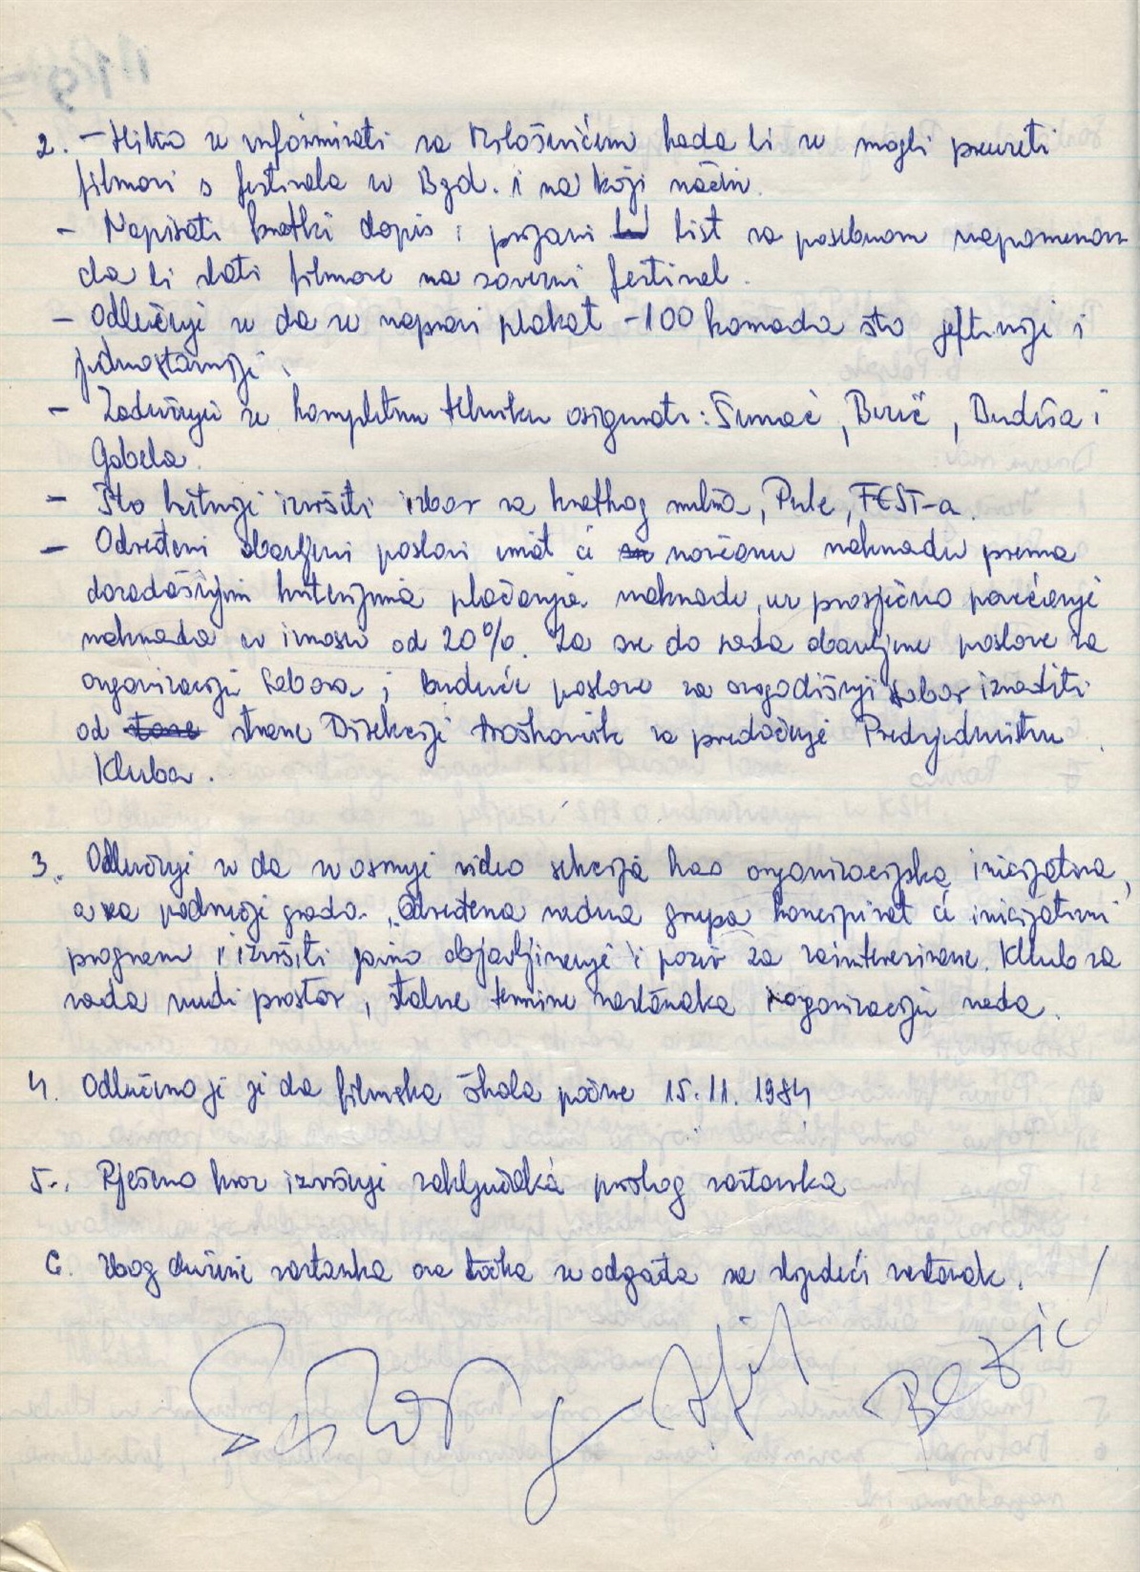 2. – Hitno se informirati sa Miloševićem kada bi se mogli preuzeti
filmovi s festivala u Bgd. i na koji način.
– Napisati kratki dopis i prijavni list sa posebnom napomenom
da li slati filmove na savezni festival.
– Odlučuje se da se napravi plakat – 100 komada što jeftinije i
jednostavnije.
– Zadužuju se kompletnu tehniku osigurati: , , Budiša i
Gabela.
– Što hitnije izvršiti izbor sa kratkog metra, Pule, FEST-a.
– Određeni obavljeni poslovi imat će novčanu naknadu prema
dosadašnjim kriterijima plaćanja naknade, uz prosječno povećanje
naknada u iznosu od 20%. Za sve do sada obavljene poslove za
organizaciju Sabora i buduće poslove za ovogodišnji sabor izraditi
od tone strane Direkcije troškovnik za predočenje Predsjedništvu
Kluba.
3. Odlučuje se da se osnuje video sekcija kao organizacijska inicijativa,
a za područje grada. Određena radna grupa koncipirat će inicijativni
program i izvršiti javno objavljivanje i poziv za zainteresirane. Klub za
sada nudi prostor, stalne termine sastanaka i organizaciju rada.
4. Odlučeno je je da filmska škola počne 15. 11. 1984
5. Rješeno kroz izvršenje zaključaka prošlog sastanka
6. Zbog dužine sastanka ova točka se odgađa za slijedeći sastanak.
Bezić